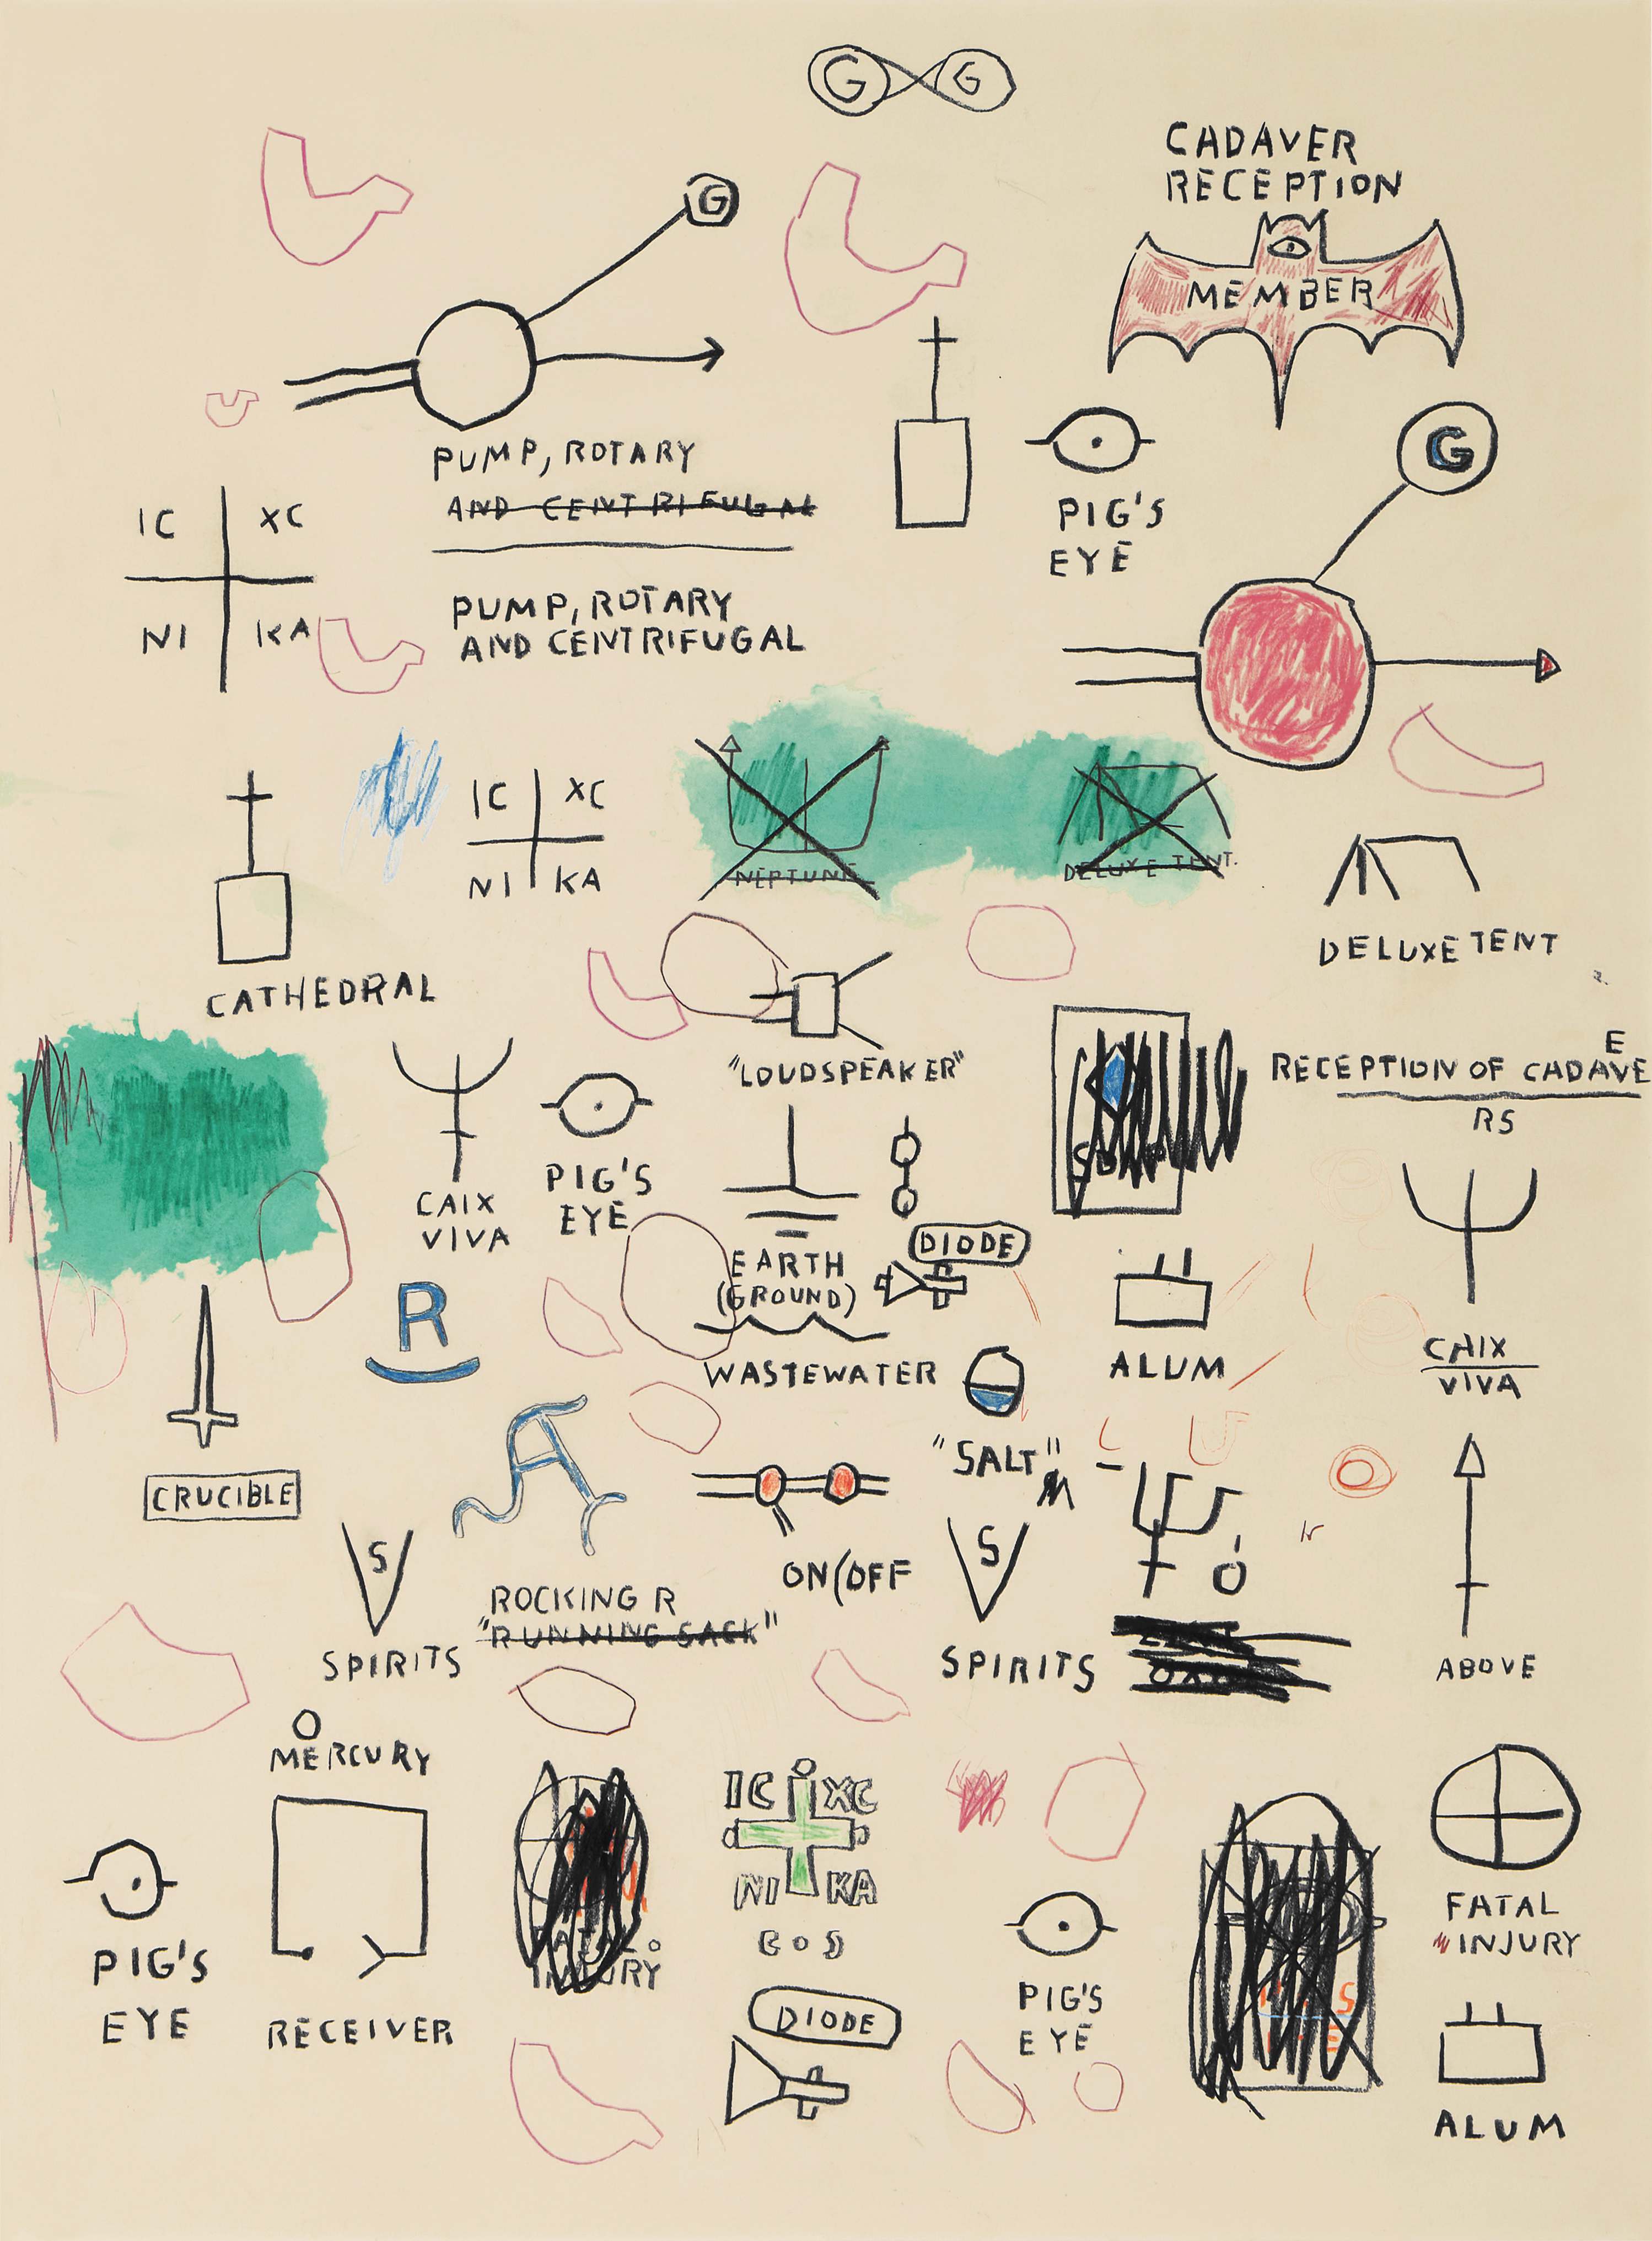 G G
CADAVER
RECEPTION
G
MEMBER
G
PUMP, ROTARY
AND CENTRIFUGAL
PIG'S
EYE
IC XC
NI KA
PUMP, ROTARY
AND CENTRIFUGAL
IC XC
NI KA
NEPTUNE
DELUXE TENT.
DELUXE TENT
CATHEDRAL
"LOUDSPEAKER"
E
RECEPTION OF CADAVE
RS
PIG'S
EYE
CAIX
VIVA
DIODE
EARTH
(GROUND)
R
WASTEWATER
ALUM
CAIX
VIVA
"SALT"
CRUCIBLE
S
S
ON(OFF
ROCKING R
"RUNNING SACK"
SPIRITS
SPIRITS
ABOVE
MERCURY
IC XC
NI KA
FATAL
INJURY
INJURY
PIG'S
EYE
RECEIVER
DIODE
PIG'S
EYE
ALUM